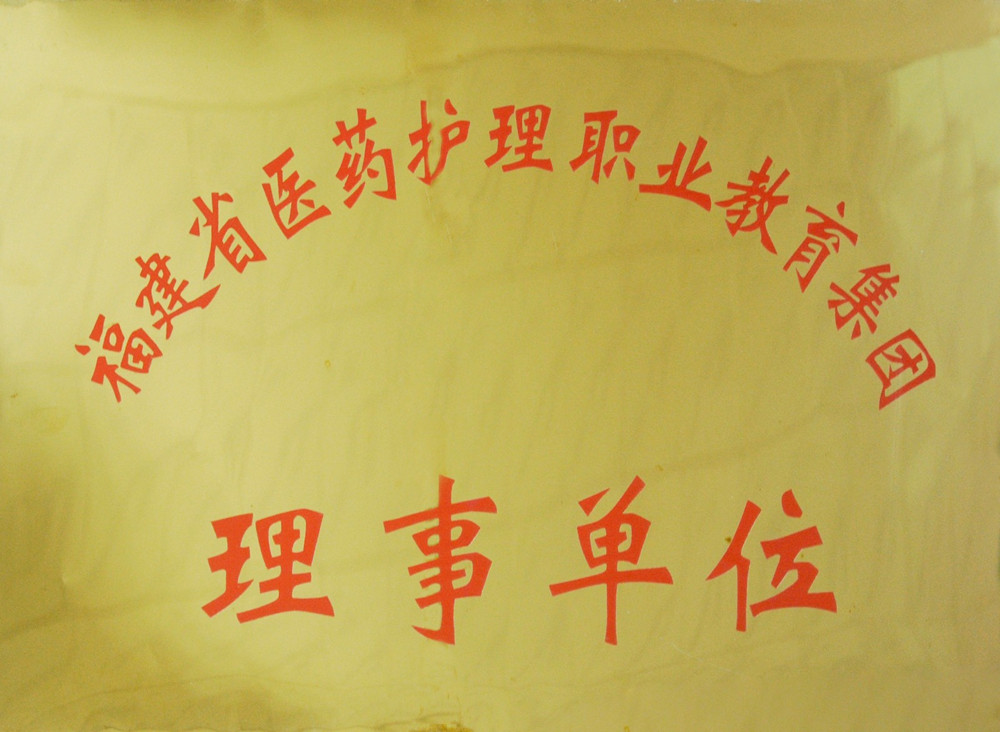 福建省医药护理职业教育集团
理事单位